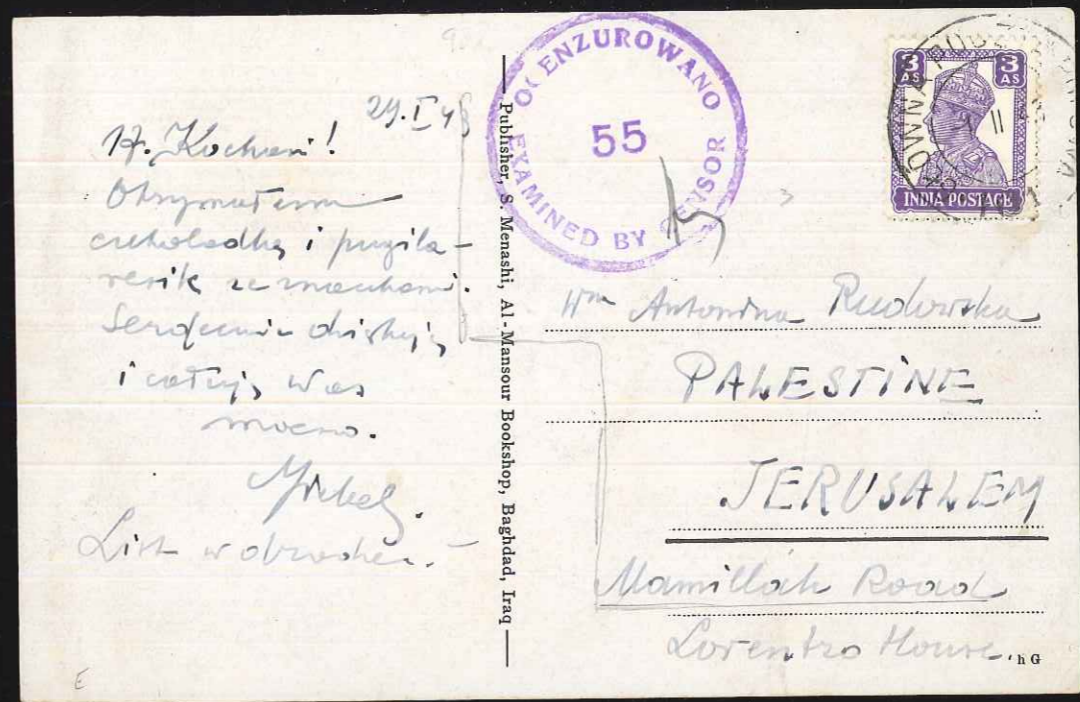 29.I 43
Kochani!
Otrzymałem
czekoladkę i pugila-
resik ze znaczkami.
Serdecznie dziękuję
i całuję Was
mocno.
List w drodze.
Publisher, S. Menashi, Al-Mansour Bookshop, Baghdad, Iraq
OCENZUROWANO
55
EXAMINED BY CENSOR
3 AS 3 AS
INDIA POSTAGE
Antonina Rudowska
PALESTINE
JERUSALEM
Mamillah Road
Lorenzo House.
h G
E